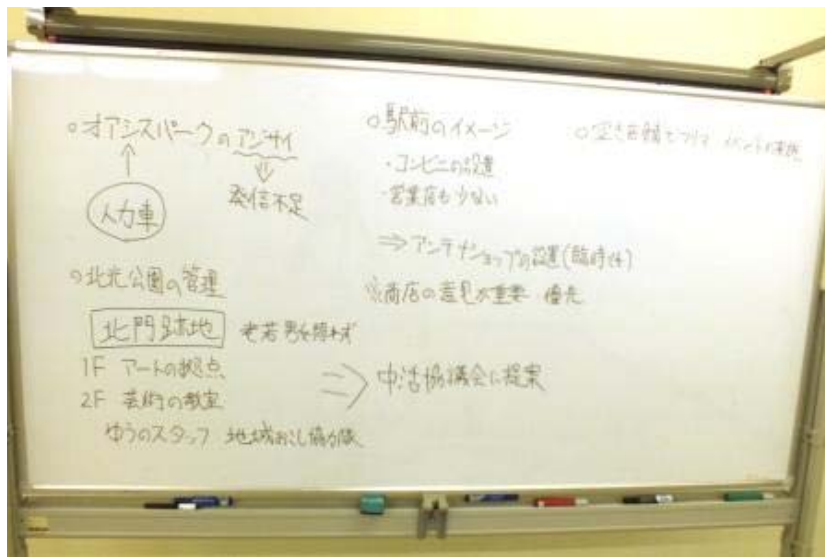 ○オアシスパークのアジサイ
人力車
発信不足
○北光公園の管理
北門跡地 老若男女問わず
1F アートの拠点
2F 芸術の教室
ゆうのスタッフ 地域おこし協力隊
○駅前のイメージ
・コンビニの設置
・営業店も少ない
⇒アンテナショップの設置(臨時でも)
※商店の意見が重要 優先
⇒中活協議会に提案
○空き店舗でフリマ イベントの実施